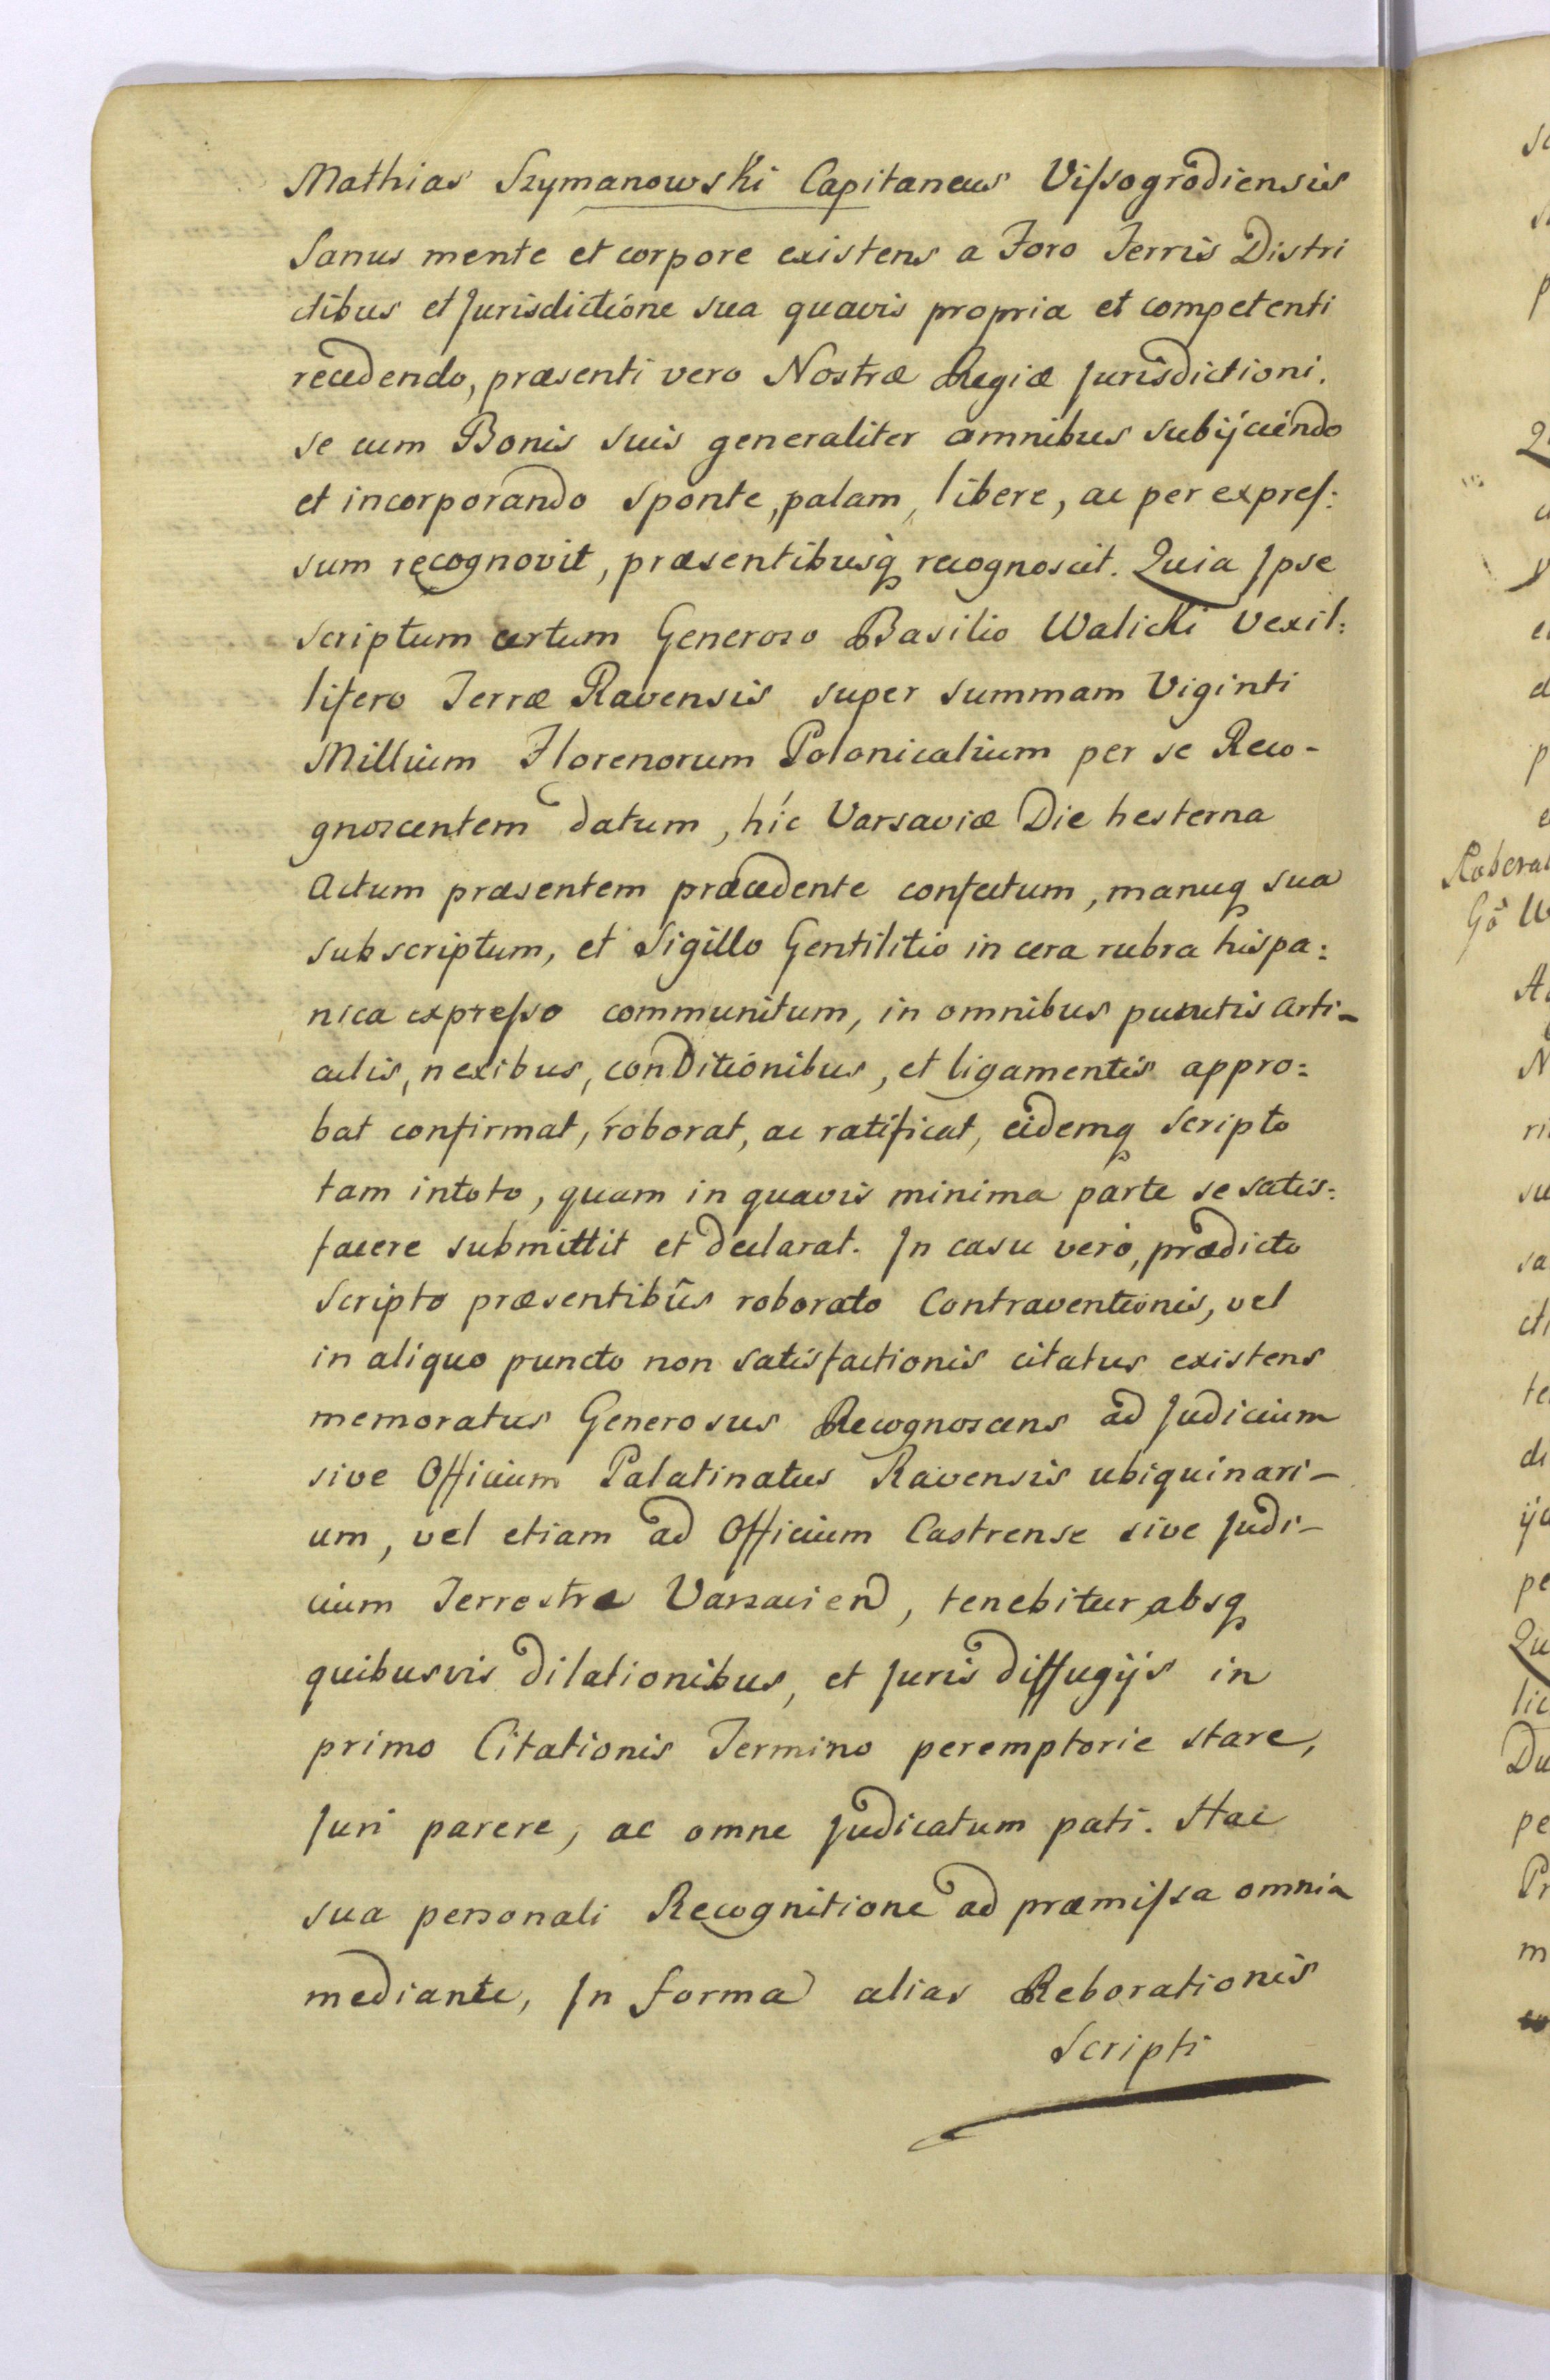 Mathias Szymanowski Capitaneus Viſsogrodiensis
Sanus mente et corpore existens a Foro Terris Distri
ctibus et Jurisdictione sua quavis propria et competenti
recedendo, præsenti vero Nostræ Regiæ Jurisdictioni.
se cum Bonis suis generaliter omnibus subijciendo
et incorporando sponte, palam, libere, ac per expreſ:
sum recognovit, præsentibusq recognoscit. Quia Ipse
scriptum certum Generoso Basilio Walicki Vexil:
lifero Terræ Ravensis super summam Viginti
Millium Florenorum Polonicalium per se Reco-
gnoscentem datum, hic Varsaviæ Die hesterna
Actum præsentem præcedente confectum, manuq sua
subscriptum, et Sigillo Gentilitio in cera rubra hispa:
nica expreſso communitum, in omnibus punctis arti-
culis, nexibus, conditionibus, et ligamentis appro:
bat confirmat, roborat, ac ratificat, eidemq Scripto
tam intoto, quam in quavis minima parte se satis:
facere submittit et declarat. In casu vero, prædicto
Scripto præsentibus roborato Contraventionis, vel
in aliquo puncto non satisfactionis citatus existens
memoratus Generosus Recognoscens ad Judicium
sive Officium Palatinatus Ravensis ubiquinari-
um, vel etiam ad Officium Castrense sive Judi-
cium Terrestre Varsavien, tenebitur, absq
quibusvis dilationibus, et Juris diffugijs in
primo Citationis Termino peremptorie stare,
Juri parere, ac omne Judicatum pati. Hac
sua personali Recognitione ad præmiſsa omnia
mediante, In forma alias Reborationis
Scripti
Roborat